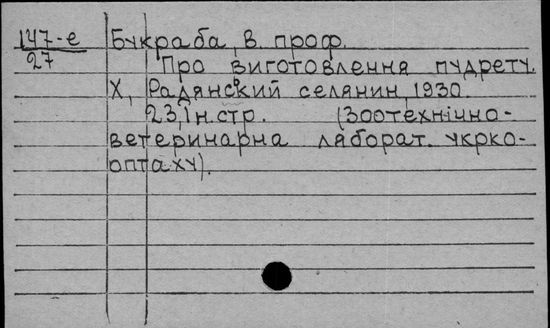 147-е Букраба, В. проф.
27
Про виготовлення пудрету.
Х, Радянський селянин, 1930.
23, Ін. стр. (Зоотехнічно-
ветеринарна ляборат. Укрко-
оптаху).